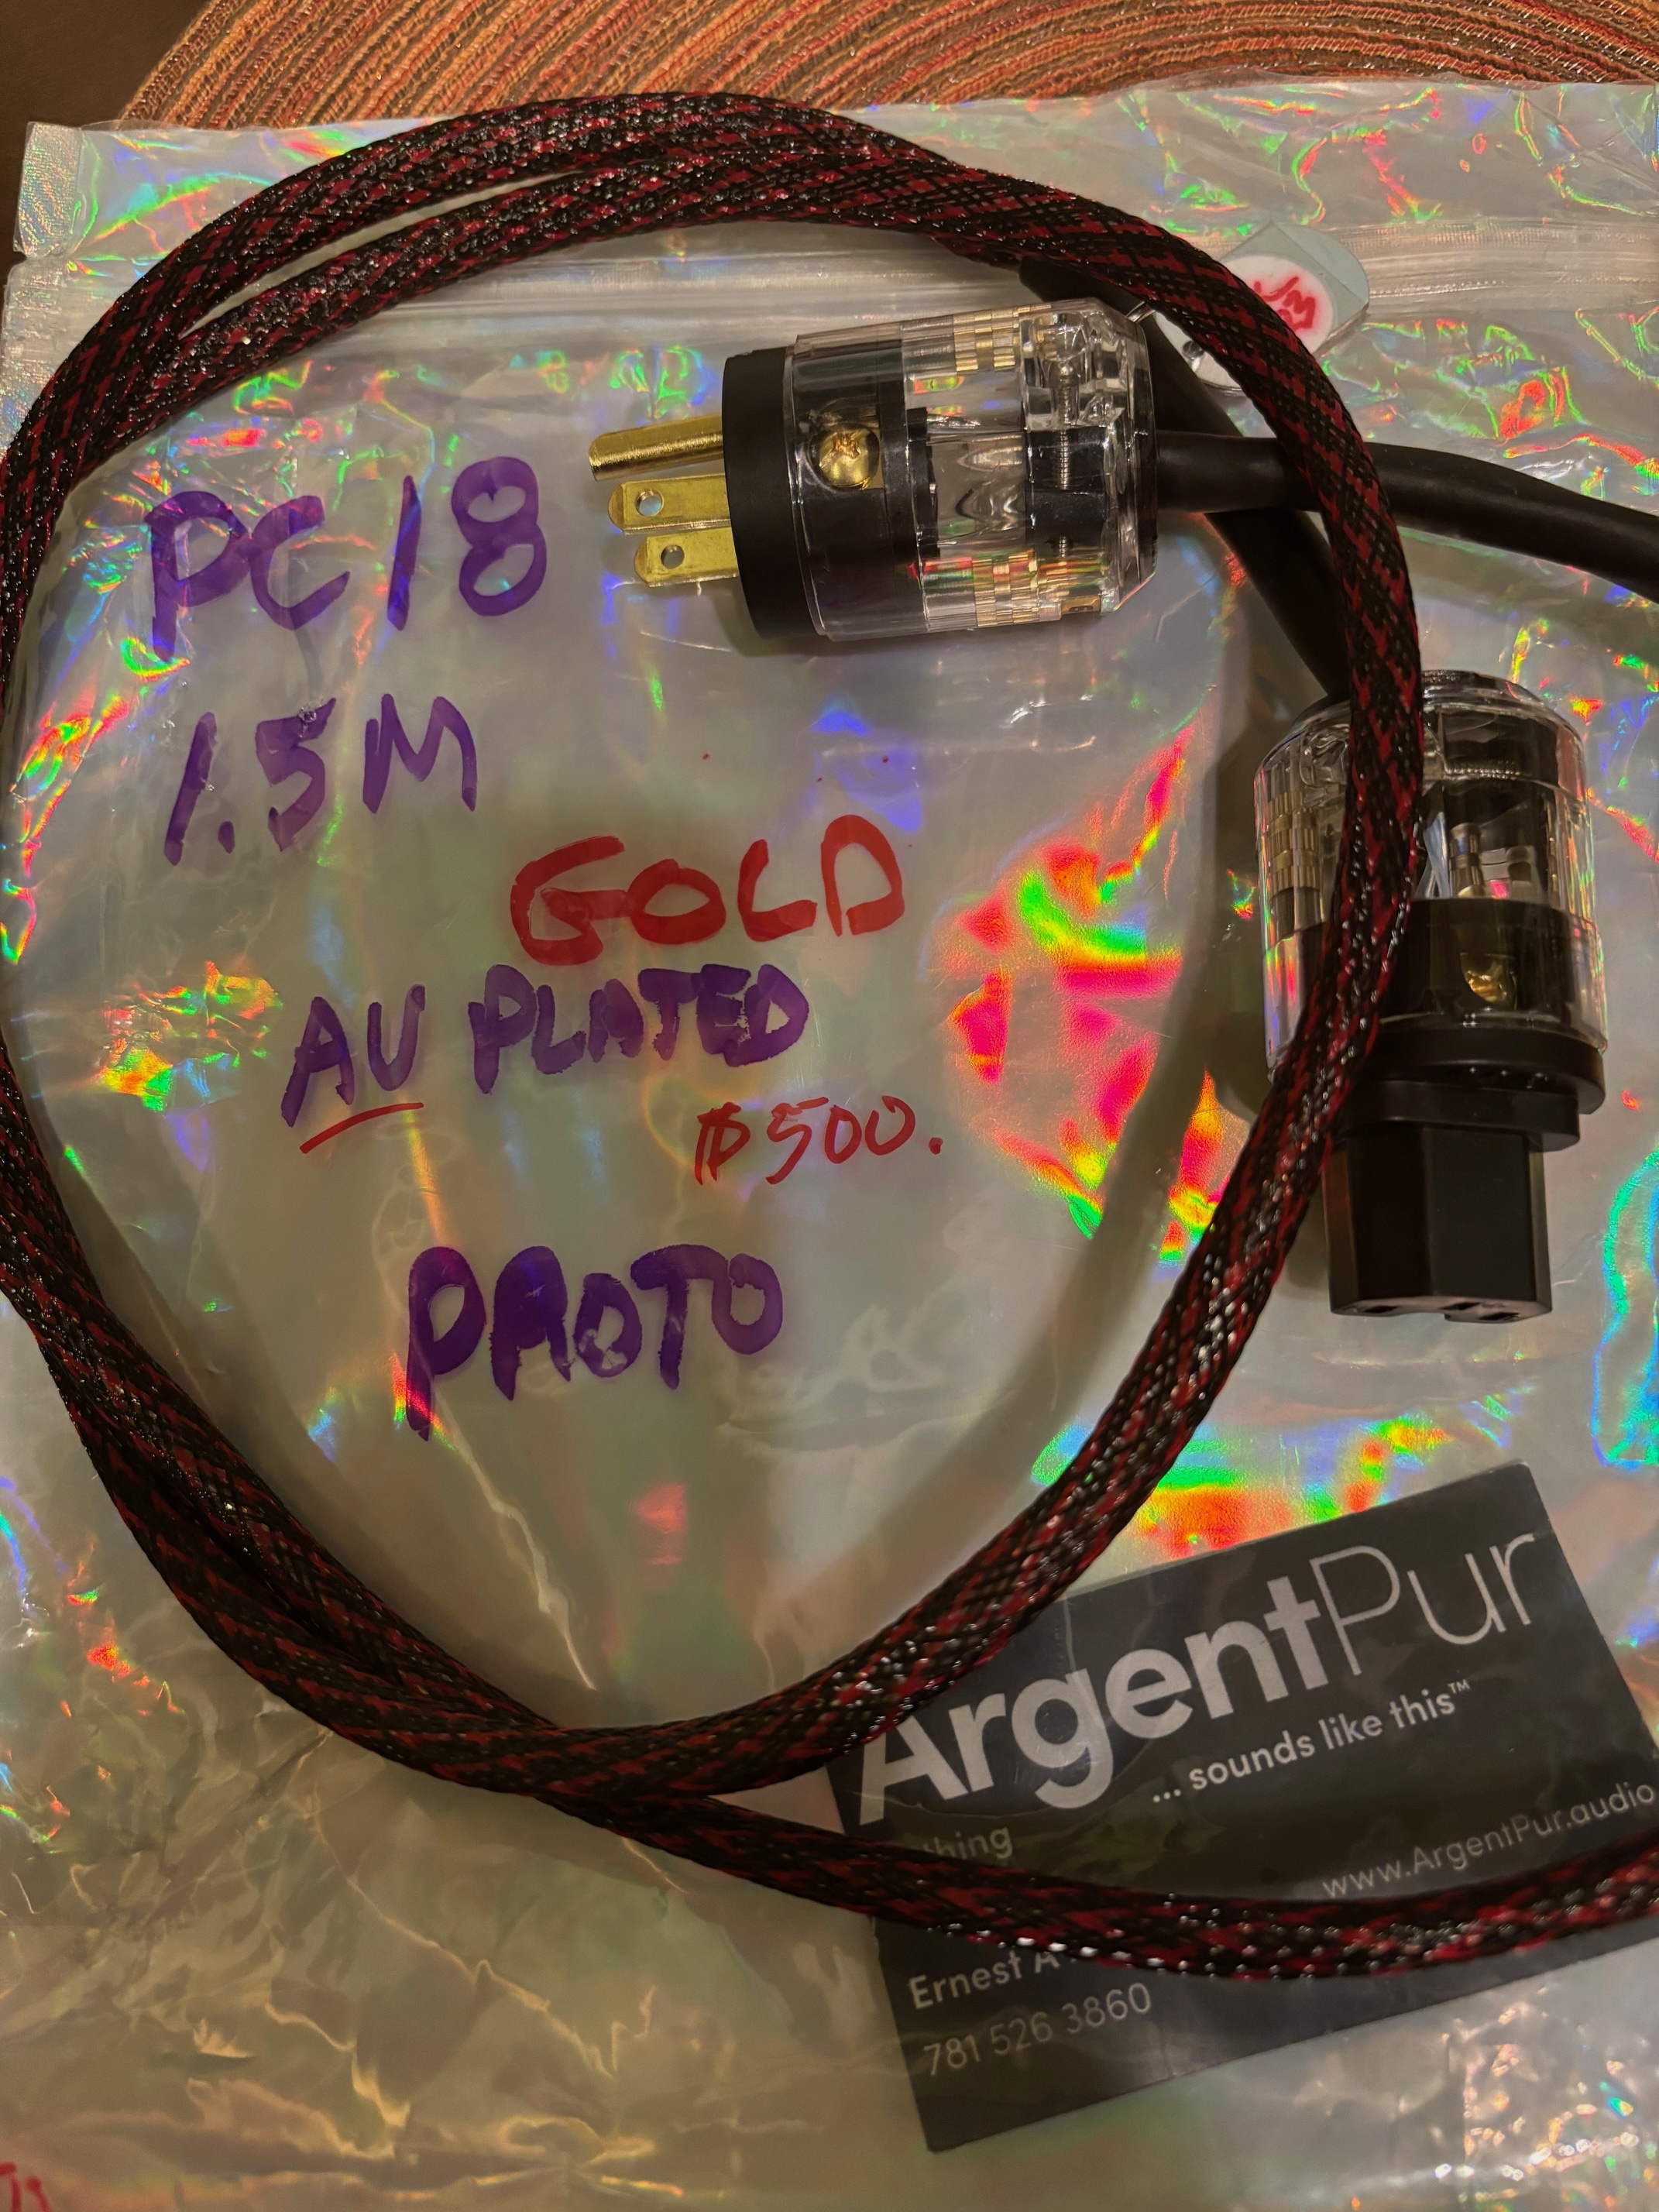 PC18
1.5M
GOLD
AU PLATED
$500.
PROTO
ArgentPur
... sounds like this™
thing
www.ArgentPur.audio
Ernest A
781 526 3860